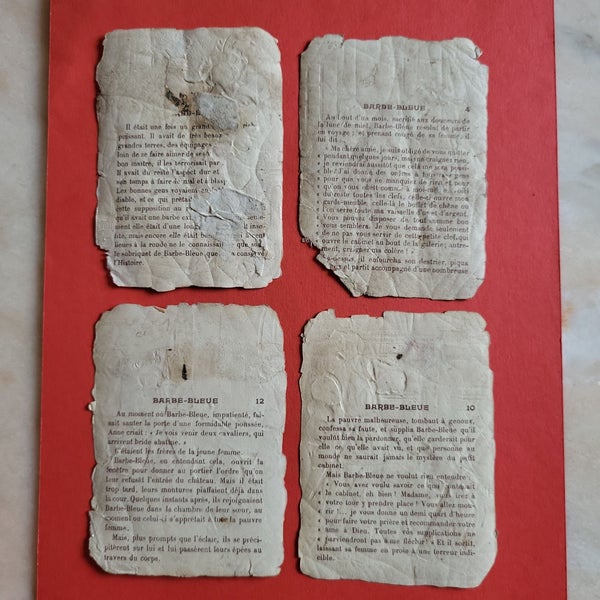 Il était une fois un grand
puissant. Il avait de très beaux
grandes terres, des équipages
loin de se faire aimer de ses
bon maître, il les terrorisait par
Il avait du reste l'aspect dur et
son temps à faire de mal et à
Les bonnes gens voyaient en
diable, et ce qui prêtait
cette supposition au
qu'il avait une barbe ex
ment elle était d'une longueur inso-
lite, mais encore elle était b
lieues à la ronde ne le connaissait que sous
le sobriquet de Barbe-Bleue que conservé
l'Histoire.
BARBE-BLEUE 4
Au bout d'un mois, sacrifié aux douceurs de
la lune de miel, Barbe-Bleue résolut de partir
en voyage; et prenant congé de sa femme, il
lui dit.
« Ma chère amie, je suis obligé de vous quitter
« pendant quelques jours, mais ne craignez rien,
« je reviendrai aussitôt que cela me sera possi-
« ble. J'ai donné des ordres à mes gens
« pour que vous ne manquiez de rien et pour
« qu'on vous obéit comme à moi-même. Voici
« du reste toutes les clefs, celle-ci ouvre mon
« garde-meuble, celle-là le buffet de chêne où
« l'on serre toute ma vaisselle d'or et d'argent.
« Vous pouvez disposer de tout comme bon
« vous semblera. Je vous demande seulement
« de ne pas vous servir de cette petite clef, qui
« ouvre le cabinet au bout de la galerie; autre-
« ment, craignez ma colère! »
Là-dessus, il enfourcha son destrier, piqua
et partit accompagné d'une nombreuse
BARBE-BLEUE 12
Au moment où Barbe-Bleue, impatienté, fai-
sait sauter la porte d'une formidable poussée,
Anne criait : « Je vois venir deux cavaliers, qui
arrivent bride abattue. »
C'étaient les frères de la jeune femme.
Barbe-Bleue, en entendant cela, ouvrit la
fenêtre pour donner au portier l'ordre qu'on
leur refusât l'entrée du château. Mais il était
trop tard, leurs montures piaffaient déjà dans
la cour. Quelques instants après, ils rejoignaient
Barbe-Bleue dans la chambre de leur sœur, au
moment où celui-ci s'apprêtait à tuer la pauvre
femme.
Mais, plus prompts que l'éclair, ils se préci-
pitèrent sur lui et lui passèrent leurs épées au
travers du corps.
BARBE-BLEUE 10
La pauvre malheureuse, tombant à genoux,
confessa sa faute, et supplia Barbe-Bleue qu'il
voulût bien la pardonner, qu'elle garderait pour
elle ce qu'elle avait vu, et que personne au
monde ne saurait jamais le mystère du petit
cabinet.
Mais Barbe-Bleue ne voulut rien entendre :
« Vous avez voulu savoir ce qui
« le cabinet, eh bien! Madame, vous irez à
« votre tour y prendre place! Vous allez mou-
« rir!... je vous donne un demi quart d'heure
« pour faire votre prière et recommander votre
« âme à Dieu. Toutes vos supplications ne
« parviendront pas à me fléchir! » Et il sortit,
laissant sa femme en proie à une terreur indi-
cible.